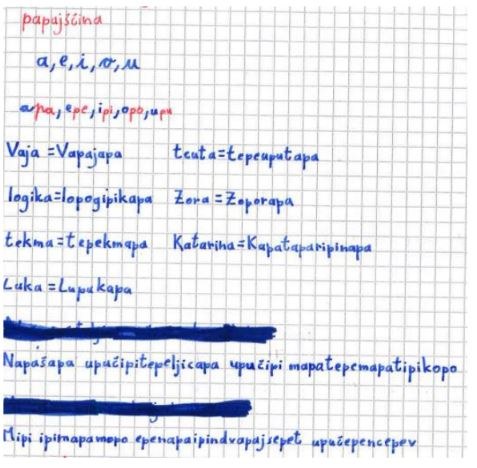 papajščina
a, e, i, o, u
apa, epe, ipi, opo, upu
Vaja = Vapajapa teuta = tepeuputapa
logika = lopogipikapa Zora = Zoporapa
tekma = tepekmapa Katarina = Kapataparipinapa
Luka = Lupukapa
Napašapa upučipitepeljicapa upučipi mapatepemapatipikopo
Mipi ipimapamopo epenapaipindvapajsepet upučepencepev